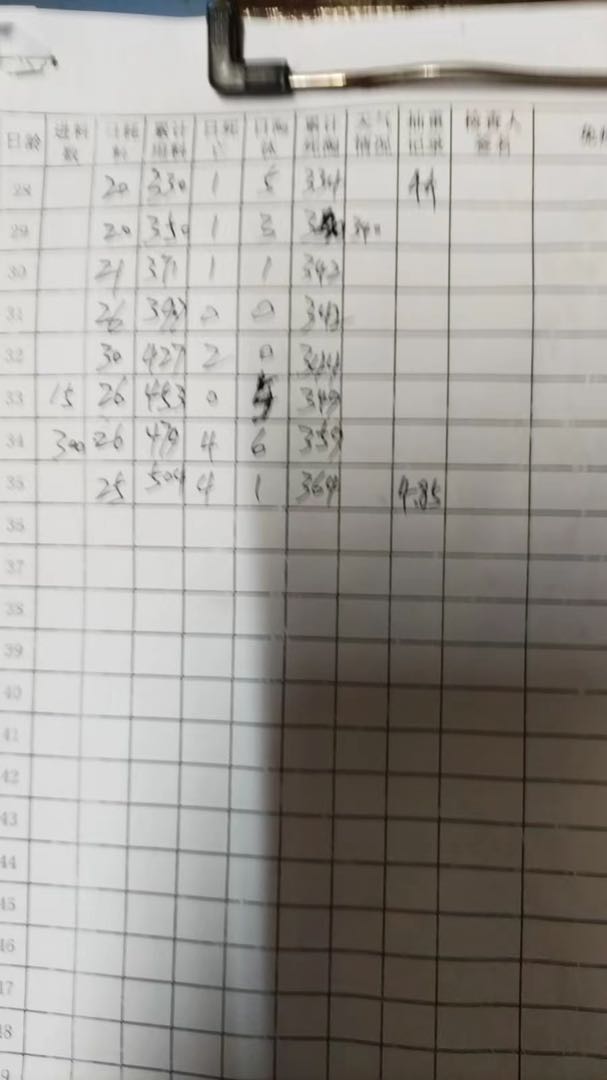 日龄 进料数 日耗料 累计用料 日死亡 日淘汰 累计死淘 天气情况 抽重记录 检查人签名
28 20 330 1 5 334 44
29 20 350 1 3 340
30 21 371 1 1 342
31 26 397 0 0 342
32 30 427 2 0 344
33 15 26 453 0 5 349
34 300 26 479 4 6 359
35 25 504 4 1 364 4.85
36
37
38
39
40
41
42
43
44
45
46
47
48